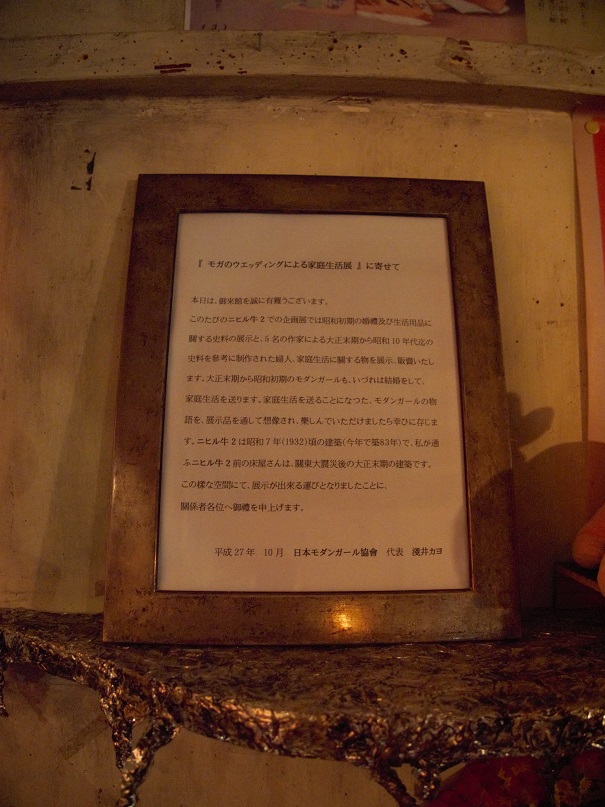 『 モガのウエッディングによる家庭生活展 』に寄せて
本日は、御來館を誠に有難うございます。
このたびのニヒル牛２での企画展では昭和初期の婚禮及び生活用品に
關する史料の展示と、５名の作家による大正末期から昭和 10 年代迄の
史料を參考に制作された婦人、家庭生活に關する物を展示、販賣いたし
ます。大正末期から昭和初期のモダンガールも、いづれは結婚をして、
家庭生活を送ります。家庭生活を送ることになつた、モダンガールの物
語を、展示品を通して想像され、樂しんでいただけましたら幸ひに存じま
す。ニヒル牛２は昭和７年(1932)頃の建築(今年で築83年)で、私が通
ふニヒル牛２前の床屋さんは、關東大震災後の大正末期の建築です。
この樣な空間にて、展示が出來る運びとなりましたことに、
關係者各位へ御禮を申上げます。
平成 27 年　10 月　日本モダンガール協會　代表　淺井カヨ